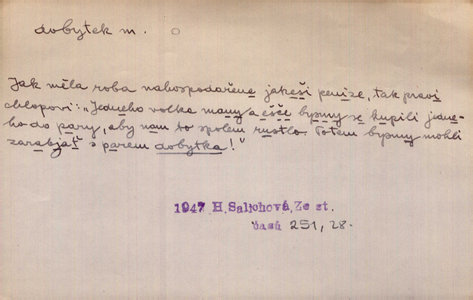 dobytek m.
Jak měla roba nahospodařene jakeśi peníze, tak pravi
chlopovi: „Jedneho volka mamy a ešče bysmy se kupili jedne-
ho do pary, aby nam to spolem rustlo. Potem bysmy mohli
zarabjać s parem dobytka!"
1947 H. Salichová, Ze st.
časů 251, 28.